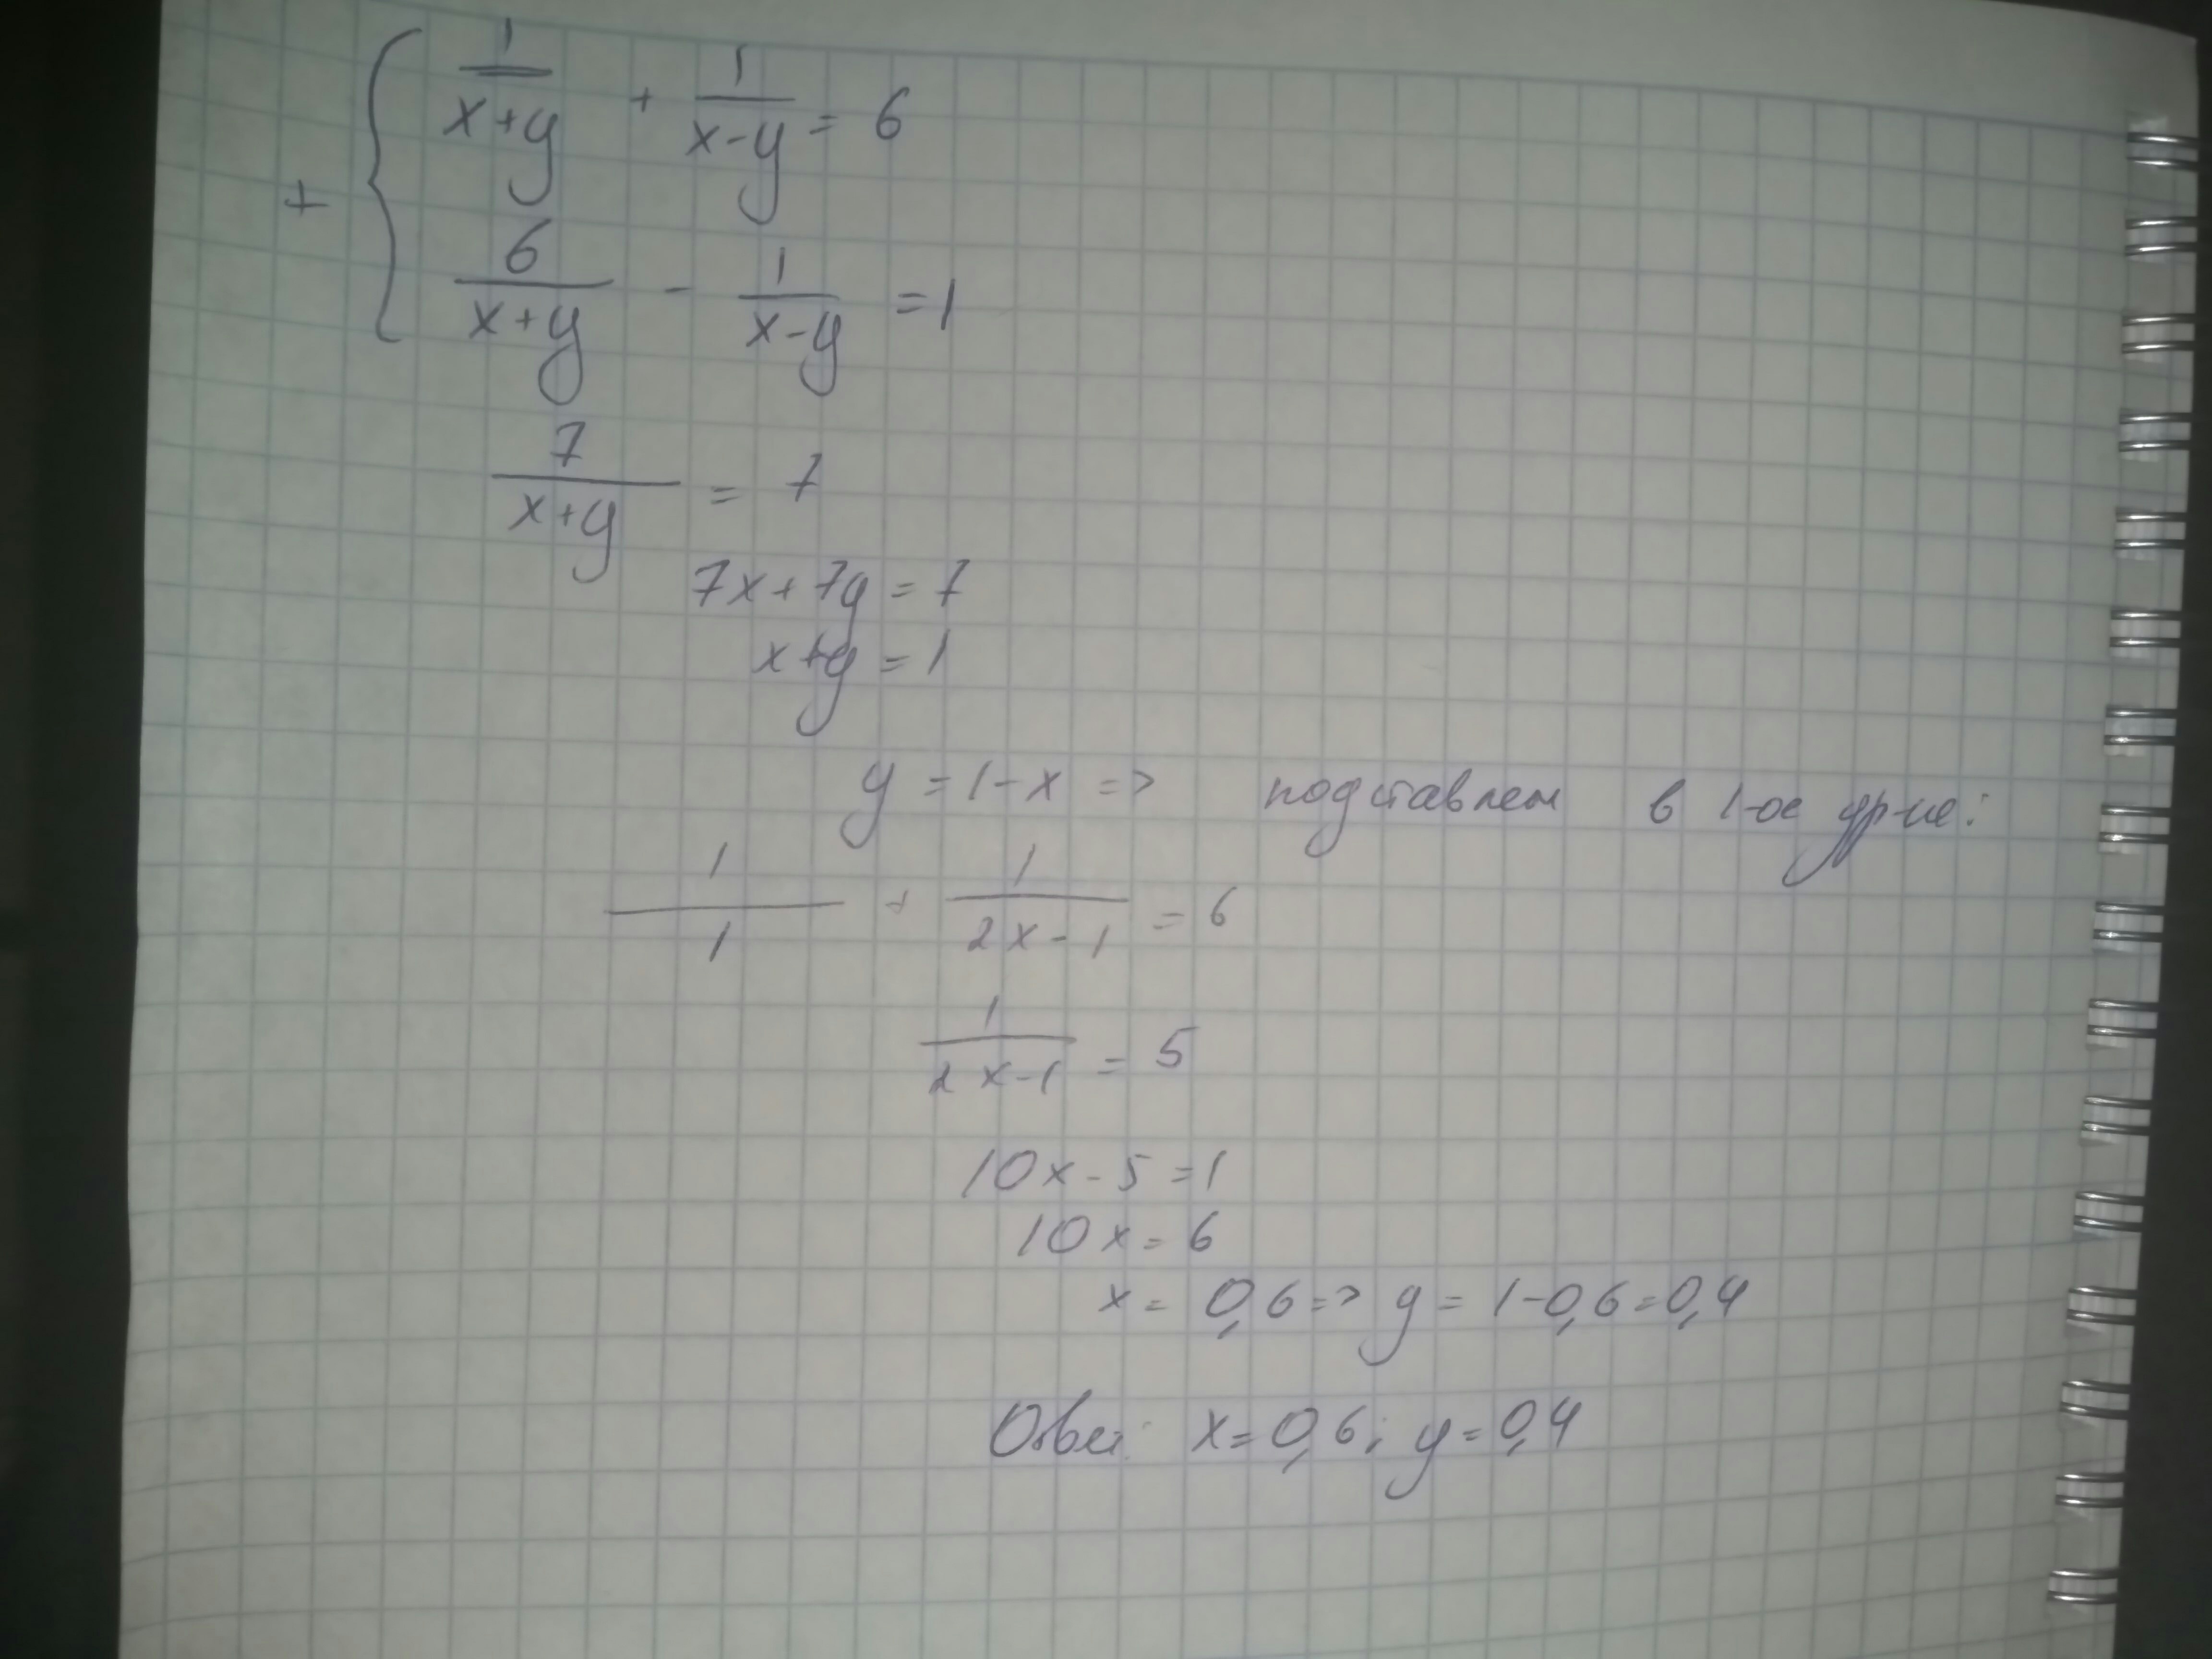 1/(x+y) + 1/(x-y) = 6
+
6/(x+y) - 1/(x-y) = 1
7/(x+y) = 7
7x+7y = 7
x+y = 1
y = 1-x => подставляем в 1-ое ур-ие:
1/1 + 1/(2x-1) = 6
1/(2x-1) = 5
10x-5=1
10x=6
x= 0,6=> y = 1-0,6=0,4
Ответ: x=0,6; y=0,4